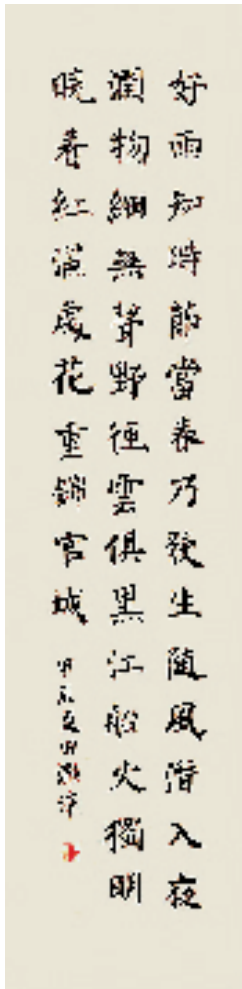 好雨知時節當春乃發生隨風潛入夜
潤物細無聲野徑雲俱黑江船火獨明
曉看紅濕處花重錦官城
甲辰夏